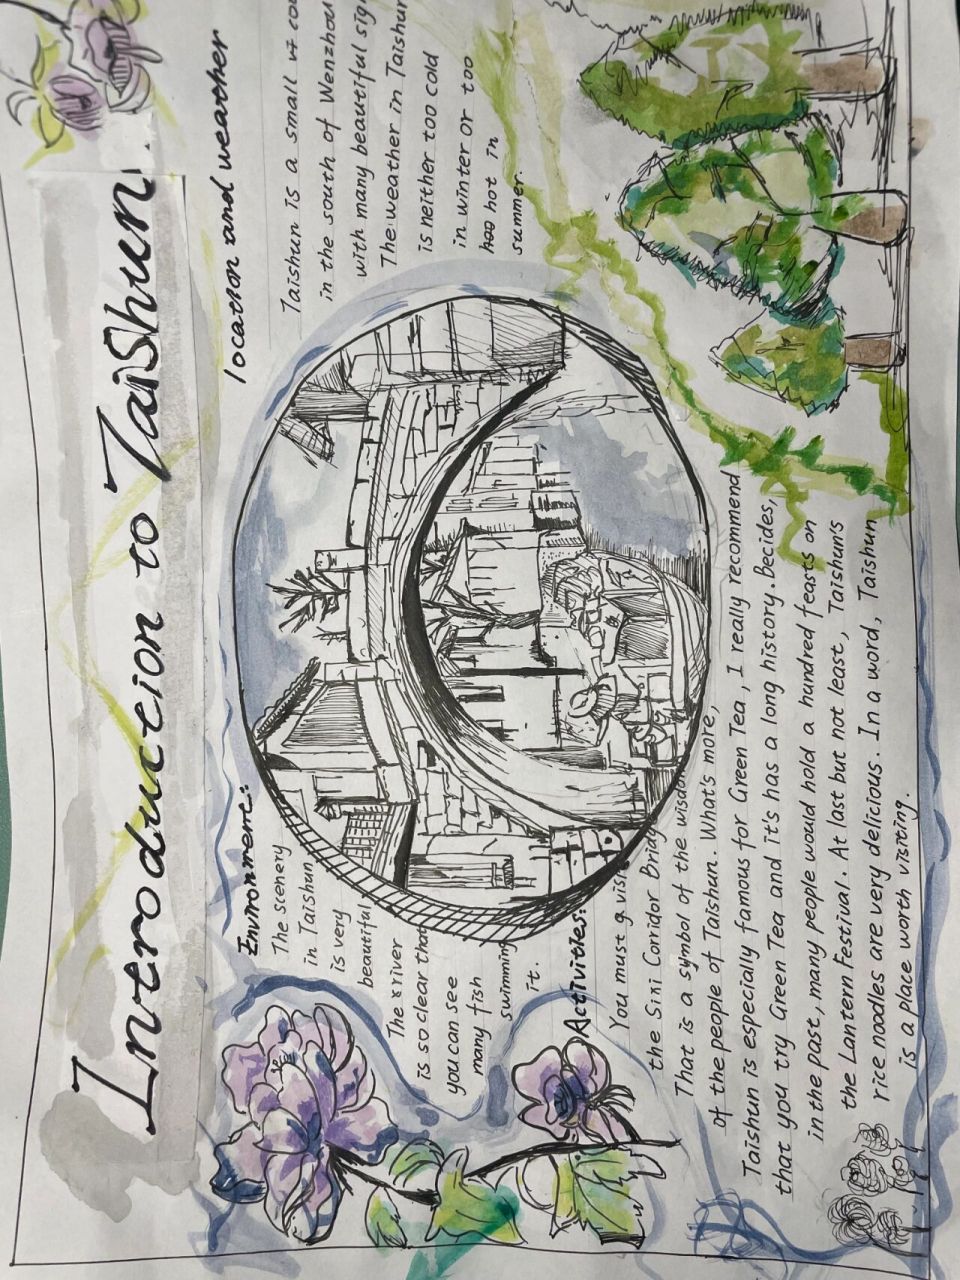 Introduction to TaiShun.
location and wearher
Taishun is a small
in the south of Wenzhou
with many beautiful
The weather in Taishun
is neither too cold
in winter or too
hot in
summer.
Environment:
The scenery
in Taishun
is very
beautiful
The river
is so clear that
you can see
many fish
swimming
it.
Activities:
You must
the Sini Corridor
That is a symbol of the wisdom
of the people of Taishun. What's more,
Taishun is especially famous for Green Tea, I really recommend
that you try Green Tea and it's has a long history. Becides,
in the past, many people would hold a hundred feasts on
the Lantern Festival. At last but not least, Taishun's
rice noodles are very delicious. In a word, Taishun
is a place worth visiting.